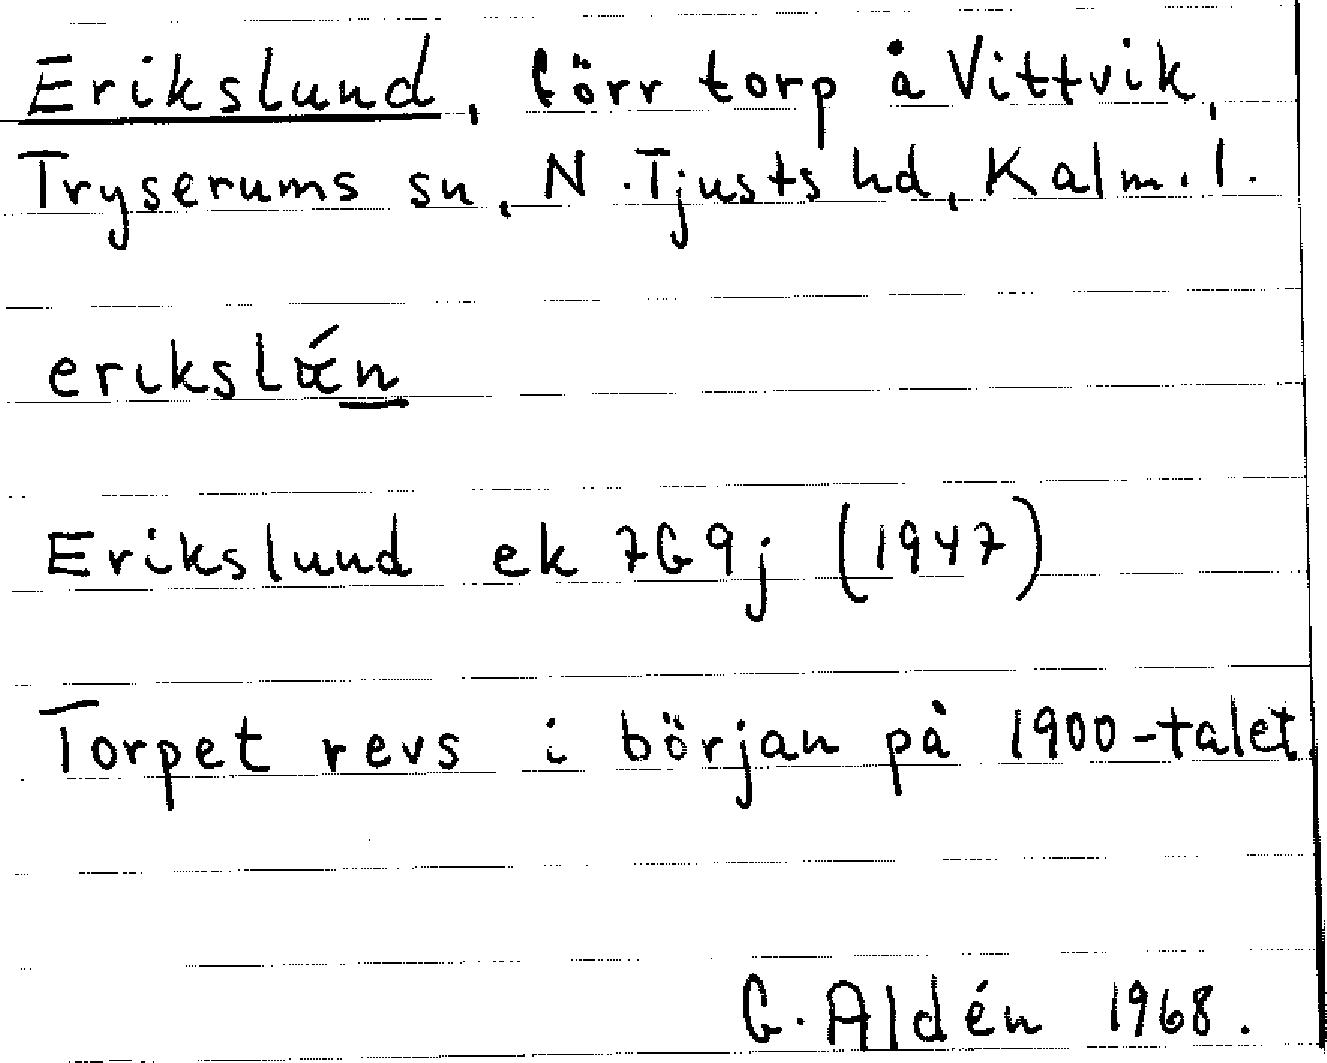 Erikslund, förr torp å Vittvik,
Tryserums sn, N. Tjusts hd, Kalm. l.
erikslǽn
Erikslund ek 7G9j (1947)
Torpet revs i början på 1900-talet.
G. Aldén 1968.